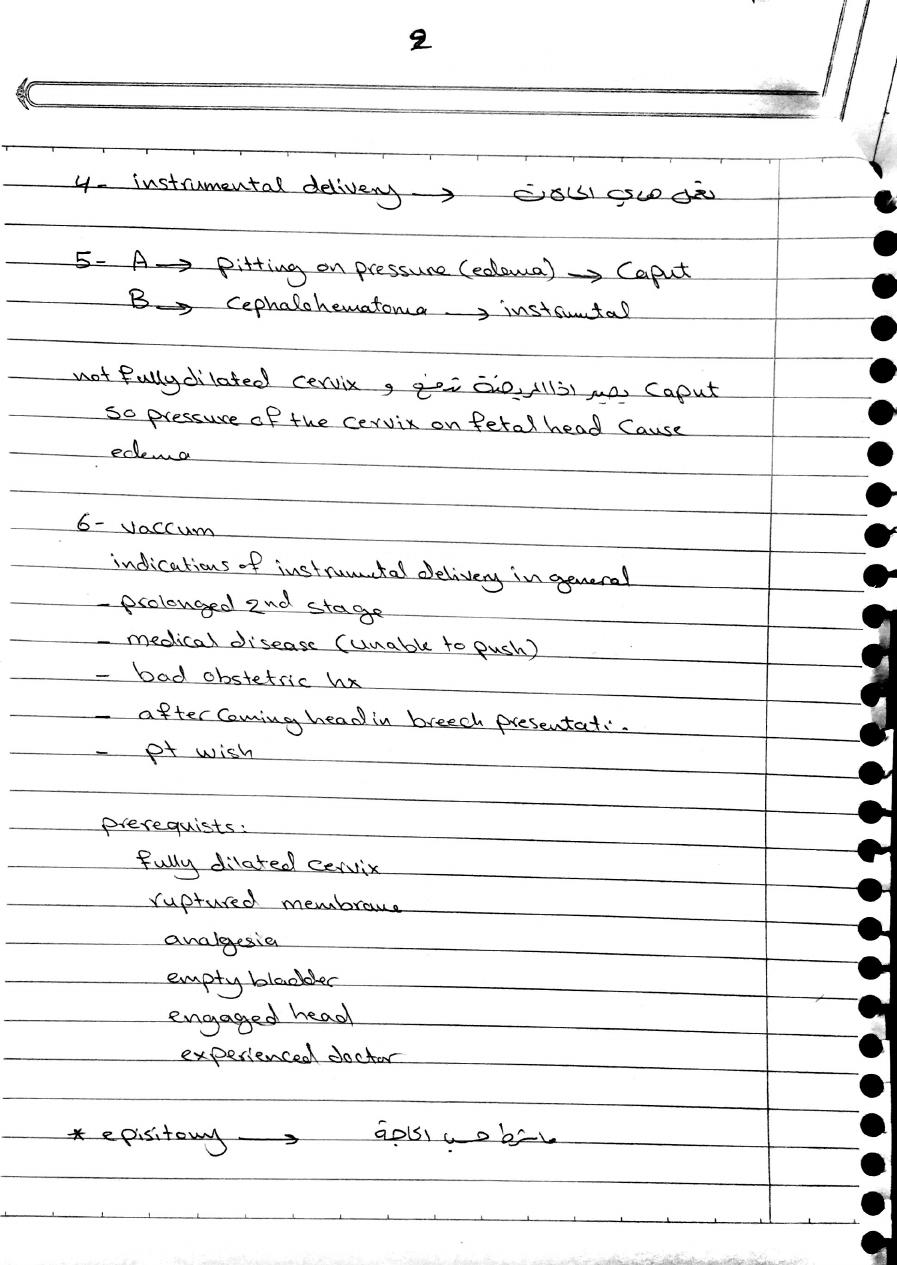 2
4- instrumental delivery →
5- A → pitting on pressure (edema) → Caput
B → cephalohematoma → instrumtal
Caput يصير اذا المريضة تدفع و not fully dilated cervix
so pressure of the cervix on fetal head Cause
edema
6- vaccum
indications of instrumental delivery in general
- prolonged 2nd stage
- medical disease (unable to push)
- bad obstetric hx
- after coming head in breech presentati.
- pt wish
prerequists:
fully dilated cervix
ruptured membrane
analgesia
empty bladder
engaged head
experienced doctor
* episitomy → حسب الحاجة